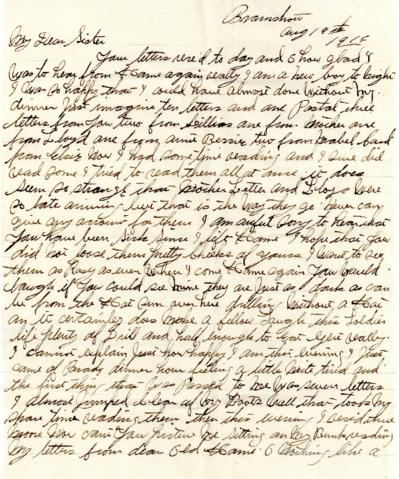 Bramshott
Aug 19th
191
My Dear Sister
Your letters rec'd to day and O how glad I
was to hear from Home again really I am a new boy to night
I was so happy that I could have almost done without my
dinner Just imagine ten letters and one Postal three
letters from you two from Lillian one from Mother one
from Lloyd one from Aunt Bessie two from Mabel and
from Elsie Now I had some time reading and I sure did
read some I tried to read them all at once it does
seem so strange that Mother Letter and Lloyd were
so late arriving but that is the way they go never can
give any account for them I am awful sorry to hear that
you have been sick since I left Home I hope that you
did not lose them pretty cheeks of yours I want to see
them as Rosy as ever when I come Home again You would
laugh if you could see mine they are Just as dark as can
be from the Hot Sun over here drilling without a Hat
on it certainley does make a fellow laugh this Soldier
life plenty of Drill and half enough to Eat Gee really
I cannot explain Just how happy I am this evening I Just
came of Parade dinner hour feeling a little tired and
the first thing that was passed to me was seven letters
I almost jumped clear of my Boots well that took my
spare time reading them then this evening I received three
more Now can you picture me sitting on my Bunk reading
my letters from dear old Home O Working like a